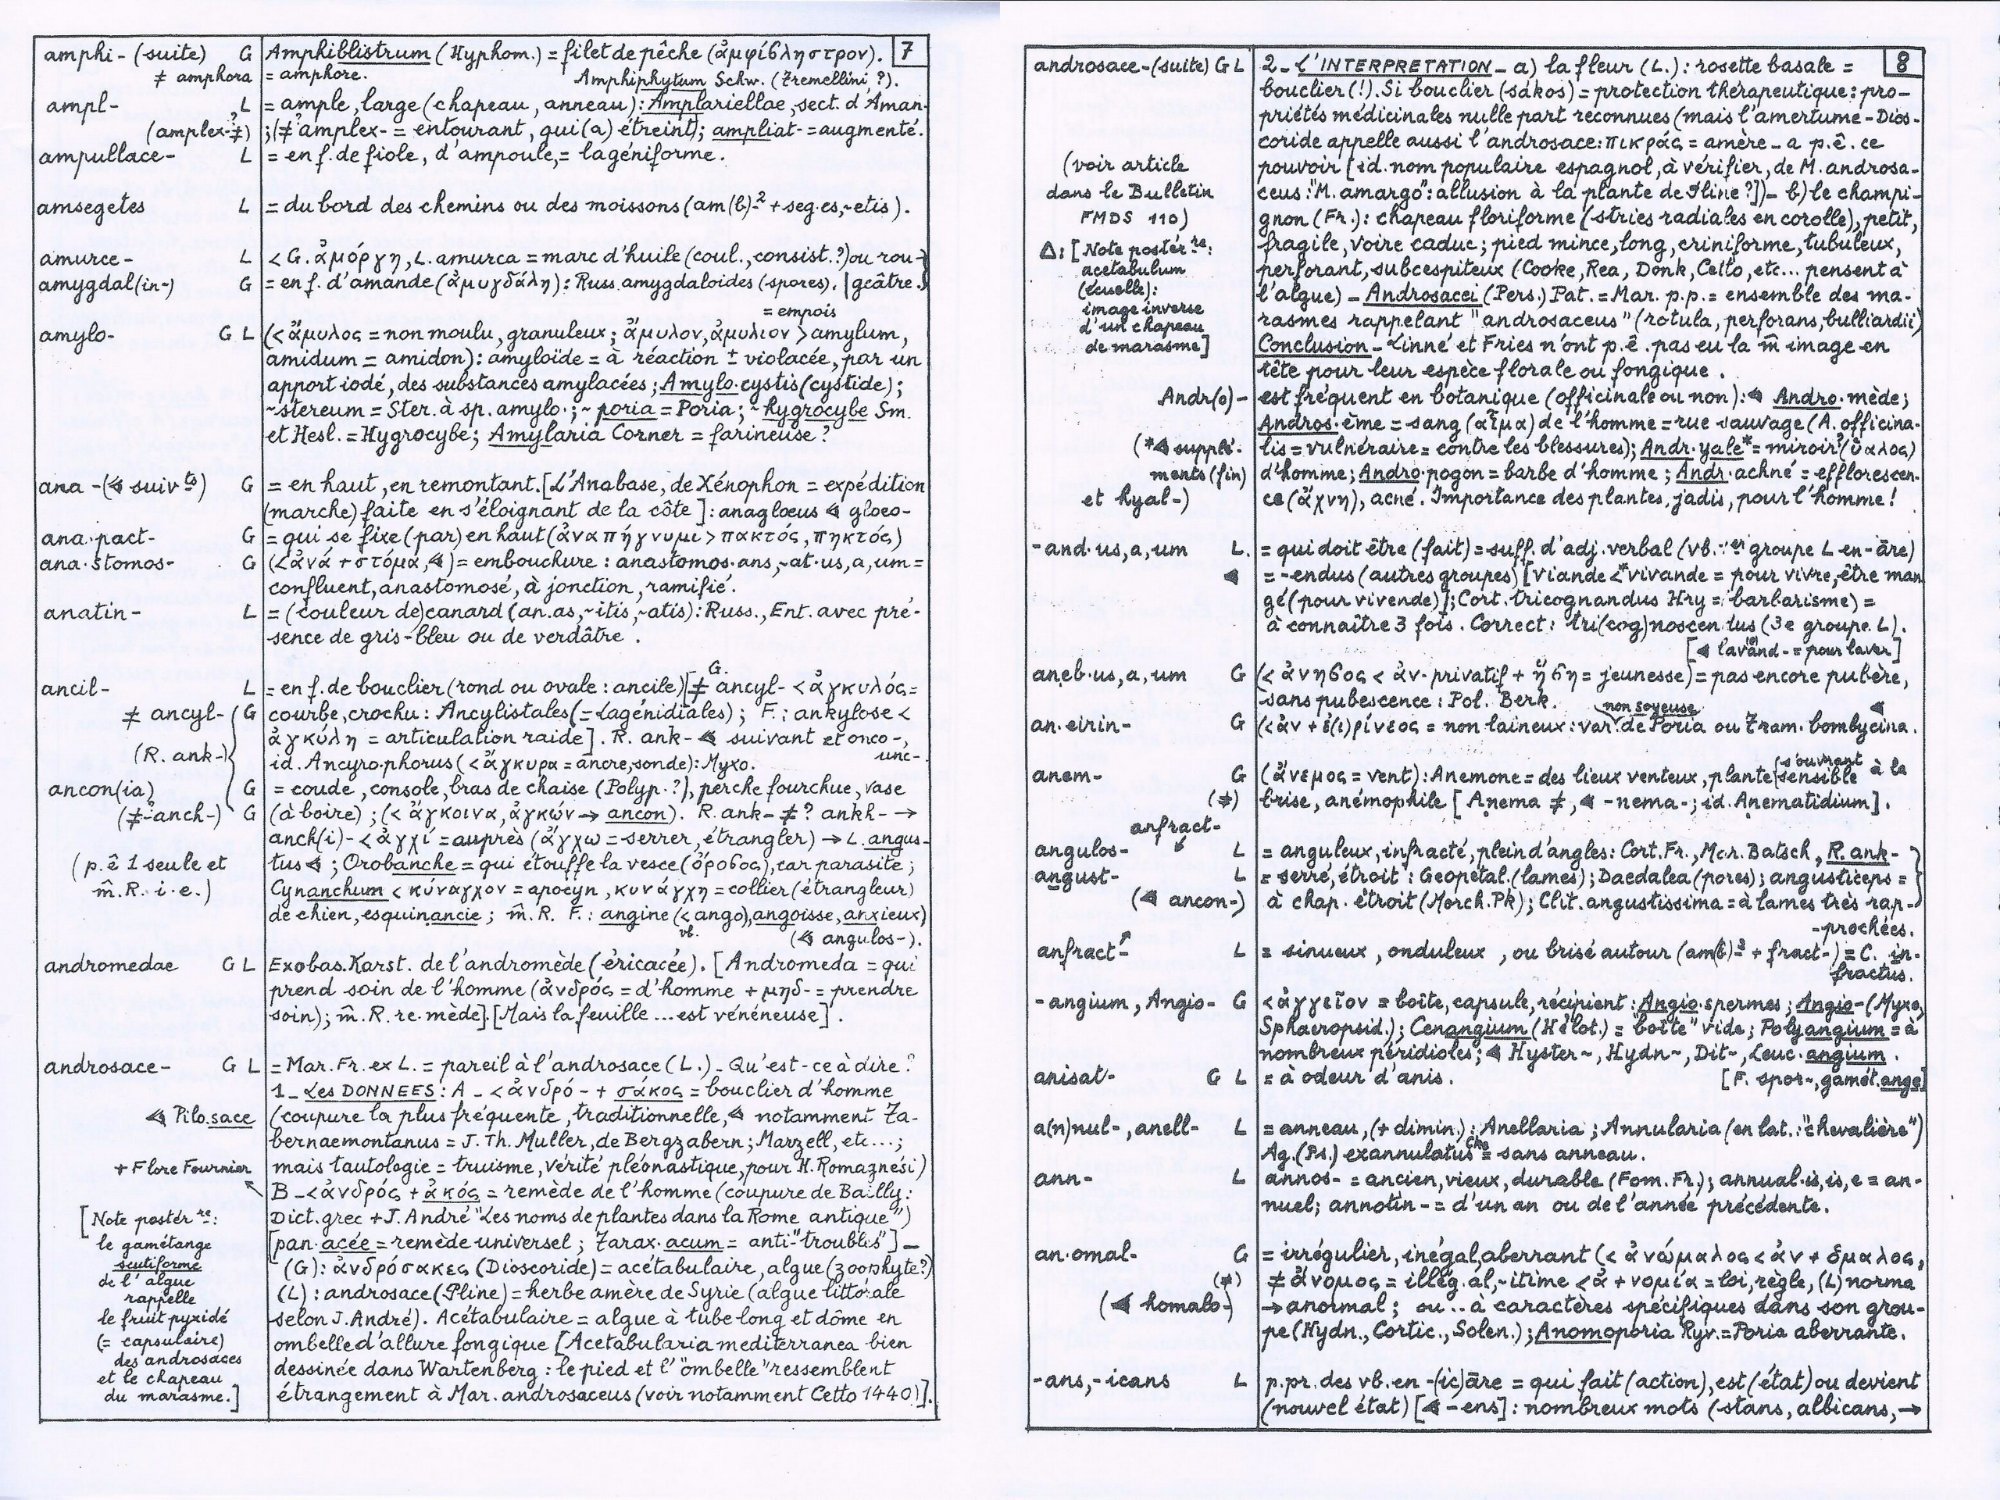 amphi- (suite) G Amphiblistrum (Hyphom.) = filet de pêche (ἀμφίβληστρον). 7
≠ amphora = amphore. Amphiphytum Schw. (Tremellini ?).
ampl- L = ample, large (chapeau, anneau): Amplariellae, sect. d'Aman-
(amplex-?≠) ; (≠? amplex- = entourant, qui (a) étreint); ampliat- = augmenté.
ampullace- L = en f. de fiole, d'ampoule, = lagéniforme.
amsegetes L = du bord des chemins ou des moissons (am(b)-² + seg·es, ~etis).
amurce- L < G. ἀμόργη, L. amurca = marc d'huile (coul., consist.?) ou rou-
amygdal(in-) G = en f. d'amande (ἀμυγδάλη): Russ. amygdaloides (spores). |geâtre.
= empois
amylo- G L (< ἄμυλος = non moulu, granuleux; ἄμυλον, ἀμύλιον > amylum,
amidum = amidon): amyloïde = à réaction ± violacée, par un
apport iodé, des substances amylacées; Amylo·cystis (cystide);
~stereum = Ster. à sp. amylo·; ~poria = Poria; ~hygrocybe Sm.
et Hesl. = Hygrocybe; Amylaria Corner = farineuse?
ana-(∢ suiv ts) G = en haut, en remontant. [L'Anabase, de Xénophon = expédition
(marche) faite en s'éloignant de la côte]: anagloeus ∢ gloeo-
ana·pact- G = qui se fixe (par) en haut (ἀναπήγνυμι > πακτός, πηκτός)
ana·stomos- G (< ἀνά + στόμα, ∢) = embouchure: anastomos·ans, ~at·us, a, um =
confluent, anastomosé, à jonction, ramifié.
anatin- L = (couleur de) canard (an.as, ~itis, ~atis): Russ., Ent. avec pré-
sence de gris-bleu ou de verdâtre.
ancil- L = en f. de bouclier (rond ou ovale: ancile) [≠ G. ancyl- < ἀγκυλός =
≠ ancyl- G courbe, crochu: Ancylistales (= Lagénidiales); F.: ankylose <
(R. ank-) ἀγκύλη = articulation raide]. R. ank- ∢ suivant et onco-,
id. Ancyro·phorus (< ἄγκυρα = ancre, sonde): Myxo. unc-.
ancon(ia) G = coude, console, bras de chaise (Polyp.?), perche fourchue, vase
(≠? anch-) G (à boire); (< ἄγκοινα, ἀγκών → ancon). R. ank- ≠? ankh- →
anch(i)- < ἀγχί = auprès (ἄγχω = serrer, étrangler) → L. angus-
(p.ê 1 seule et tus ∢; Orobanche = qui étouffe la vesce (ὄροβος), car parasite;
m̂. R. i.e.) Cynanchum < κύναγχον = apocyn, κυνάγχη = collier (étrangleur)
de chien, esquinancie; m̂. R. F.: angine (< vb. ango), angoisse, anxieux)
(∢ angulos-).
andromedae G L Exobas. Karst. de l'andromède (éricacée). [Andromeda = qui
prend soin de l'homme (ἀνδρός = d'homme + μηδ- = prendre
soin); m̂. R. re·mède] [Mais la feuille ... est vénéneuse].
androsace- G L = Mar. Fr. ex L. = pareil à l'androsace (L.). Qu'est-ce à dire?
1_ Les DONNEES: A _ < ἀνδρό- + σάκος = bouclier d'homme
∢ Pilo.sace (coupure la plus fréquente, traditionnelle, ∢ notamment Ta-
bernaemontanus = J. Th. Muller, de Bergzabern; Marzell, etc...;
+ Flore Fournier mais tautologie = truisme, vérité pléonastique, pour H. Romagnési)
B _ < ἀνδρός + ἀκός = remède de l'homme (coupure de Bailly:
[Note postér re: Dict. grec + J. André "Les noms de plantes dans la Rome antique")
le gamétange [pan·acée = remède universel; Tarax·acum = anti-"troubles"] _
scutiforme (G): ἀνδρόσακες (Dioscoride) = acétabulaire, algue (zoophyte?)
de l'algue
rappelle (L): androsace (Pline) = herbe amère de Syrie (algue littorale
le fruit pyxidé selon J. André). Acétabulaire = algue à tube long et dôme en
(= capsulaire) ombelle d'allure fongique [Acetabularia mediterranea bien
des androsaces dessinée dans Wartenberg: le pied et l'"ombelle" ressemblent
et le chapeau
du marasme.] étrangement à Mar. androsaceus (voir notamment Cetto 1440)].
androsace-(suite) G L 2_ L'INTERPRETATION _ a) la fleur (L.): rosette basale = 8
bouclier (!). Si bouclier (sákos) = protection thérapeutique: pro-
priétés médicinales nulle part reconnues (mais l'amertume - Dios-
coride appelle aussi l'androsace: πικράς = amère - a p.ê. ce
(voir article pouvoir [id. nom populaire espagnol, à vérifier, de M. androsa-
dans le Bulletin ceus: "M. amargo": allusion à la plante de Pline?]) _ b) le champi-
FMDS 110) gnon (Fr.): chapeau floriforme (stries radiales en corolle), petit,
∆: [Note postér re: fragile, voire caduc; pied mince, long, criniforme, tubuleux,
acetabulum perforant, subcespiteux (Cooke, Rea, Donk, Cetto, etc... pensent à
(écuelle): l'algue) _ Androsacei (Pers.) Pat. = Mar. p.p. = ensemble des ma-
image inverse
d'un chapeau rasmes rappelant "androsaceus" (rotula, perforans, bulliardii)
de marasme] Conclusion _ Linné et Fries n'ont p.ê. pas eu la m̂ image en
tête pour leur espèce florale ou fongique.
Andr(o)- est fréquent en botanique (officinale ou non): ∢ Andro·mède;
Andros·ème = sang (αἷμα) de l'homme = rue sauvage (A. officina-
(*∢ supplé- lis = vulnéraire = contre les blessures); Andr·yale* = miroir? (ὕαλος)
ments (fin) d'homme; Andro·pogon = barbe d'homme; Andr·achné = efflorescen-
et hyal-) ce (ἄχνη), acné. Importance des plantes, jadis, pour l'homme!
-and·us, a, um L. = qui doit être (fait) = suff. d'adj. verbal (vb. 1er groupe L en -āre)
∢ = -endus (autres groupes) [viande < *vivande = pour vivre, être man
gé (pour vivende)]; Cort. tricognandus Hry = barbarisme) =
à connaître 3 fois. Correct: tri(cog)noscendus (3e groupe L).
[∢ lavand(e)- = pour laver]
aneb·us, a, um G (< ἄνηβος < ἀν- privatif + ἥβη = jeunesse) = pas encore pubère,
sans pubescence: Pol. Berk. non soyeuse ∢
an·eirin- G (< ἀν + ἐ(ι)ρίνεος = non laineux: var. de Poria ou Tram. bombycina.
anem- G (ἄνεμος = vent): Anemone = des lieux venteux, plante (s'ouvrant sensible à la
(≠) brise, anémophile [Anema ≠, ∢ -nema-; id. Anematidium].
anfract-
angulos- L = anguleux, infracté, plein d'angles: Cort. Fr., Mor. Batsch, R. ank-
angust- L = serré, étroit: Geopetal. (lames); Daedalea (pores); angusticeps =
(∢ ancon-) à chap. étroit (Morch. Pk); Clit. angustissima = à lames très rap-
-prochées.
anfract- L = sinueux, onduleux, ou brisé autour (am(b)-² + fract-) = C. in-
fractus.
-angium, Angio- G < ἀγγεῖον = boîte, capsule, récipient: Angio·spermes; Angio- (Myxo,
Sphaeropsid.); Cenangium (Hélot.) = "boîte" vide; Polyangium = à
nombreux péridioles; ∢ Hyster~, Hydn~, Dit~, Leuc·angium.
anisat- G L = à odeur d'anis. [F. spor-, gamét.ange]
a(n)nul-, anell- L = anneau, (+ dimin.): Anellaria; Annularia (en lat.: "chevalière")
Ag. (Ps.) exannulatus Cke = sans anneau.
ann- L annos- = ancien, vieux, durable (Fom. Fr.); annual·is, is, e = an-
nuel; annotin- = d'un an ou de l'année précédente.
an·omal- G = irrégulier, inégal, aberrant (< ἀνώμαλος < ἀν + ὁμαλος,
(≠) ≠ ἄνομος = illég.al, ~itime < ἀ + νομία = loi, règle, (L) norma
(∢ homalo-) → anormal; ou.. à caractères spécifiques dans son grou-
pe (Hydn., Cortic., Solen.); Anomoporia Ryv. = Poria aberrante.
-ans, -icans L p.pr. des vb. en -(ic)āre = qui fait (action), est (état) ou devient
(nouvel état) [∢ -ens]: nombreux mots (stans, albicans, →